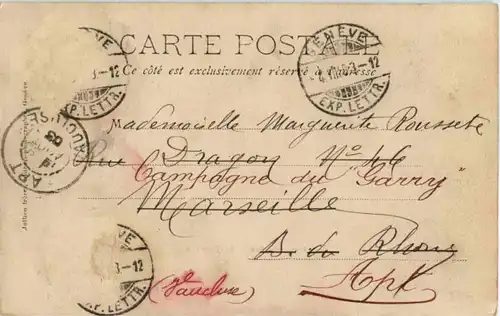 CARTE POSTALE
Ce côté est exclusivement réservé à l'adresse
GENÈVE
EXP. LETTR.
Mademoiselle Marguerite Rousset
Rue Dragon Nº 46
Campagne du "Garry"
Marseille
B. du Rhône
Apt
(Vaucluse)
GENÈVE
-12
EXP. LETTR.
GENÈVE
-12
EXP. LETTR.
APT
VAUCLUSE